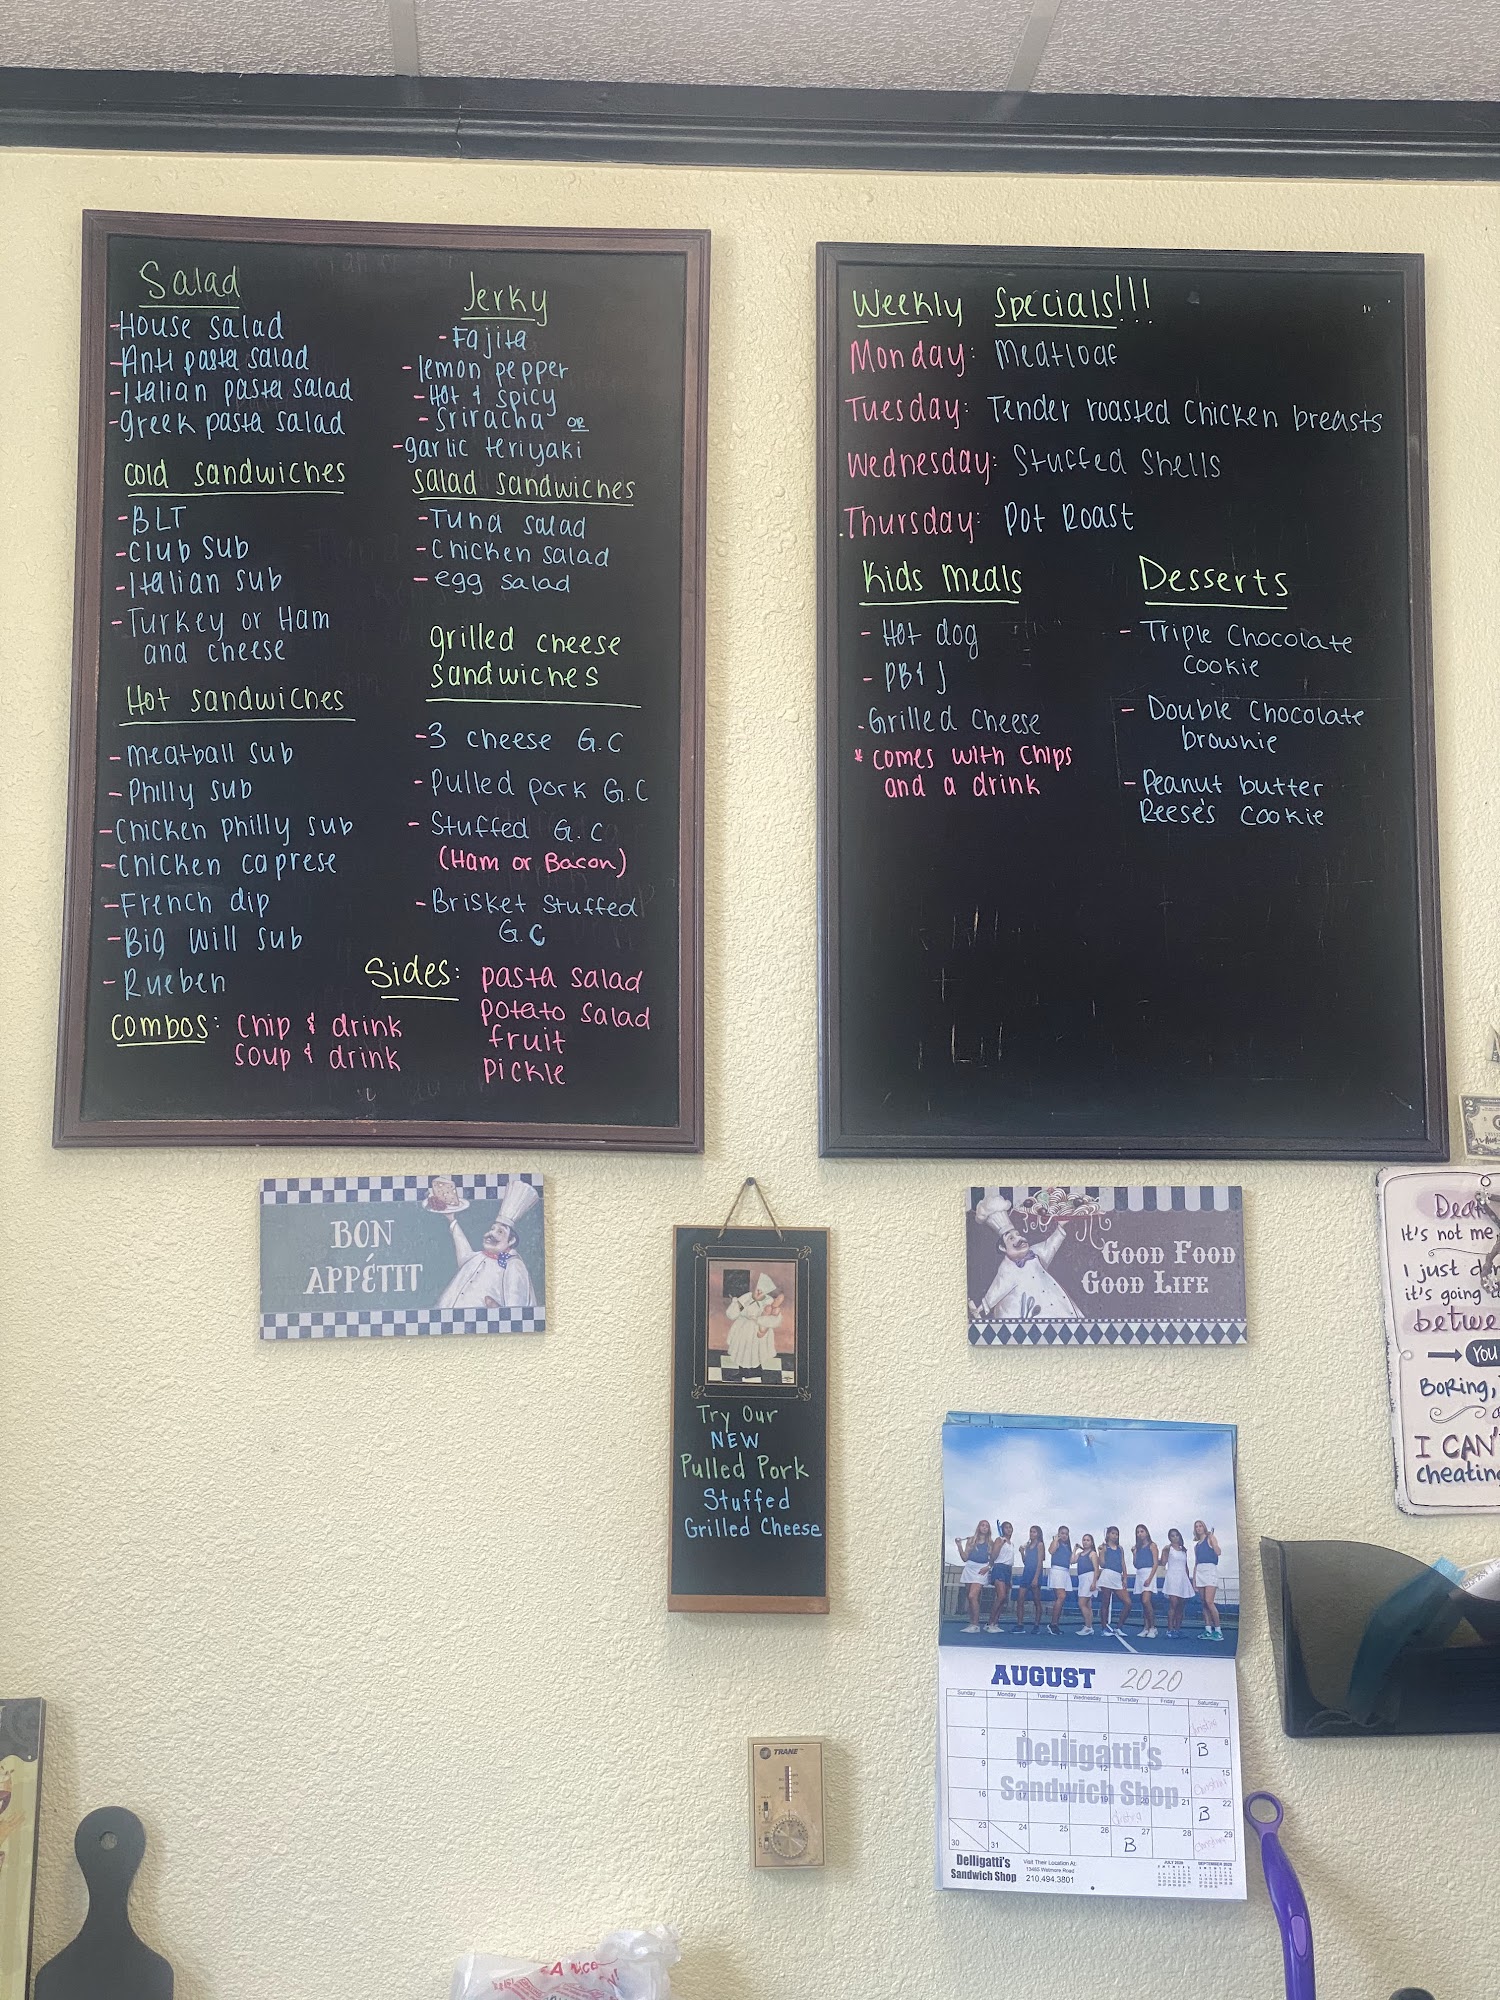 Salad
-House salad
-Anti pasta salad
-Italian pasta salad
-Greek pasta salad
cold sandwiches
-BLT
-Club sub
-Italian sub
-Turkey or Ham
and cheese
Hot sandwiches
-meatball sub
-Philly sub
-Chicken philly sub
-Chicken caprese
-French dip
-Big Will sub
-Rueben
combos: chip & drink
soup & drink
Jerky
-Fajita
-lemon pepper
-Hot & spicy
-Sriracha or
-garlic teriyaki
Salad sandwiches
-Tuna salad
-Chicken salad
-egg salad
grilled cheese
sandwiches
-3 cheese G.C
-Pulled pork G.C
-Stuffed G.C
(Ham or Bacon)
-Brisket stuffed
G.C
Sides: pasta salad
potato salad
fruit
pickle
Weekly Specials!!!
Monday: Meatloaf
Tuesday: Tender roasted Chicken breasts
Wednesday: Stuffed Shells
Thursday: Pot Roast
Kids meals
- Hot dog
- PB & J
- Grilled Cheese
* comes with chips
and a drink
Desserts
- Triple Chocolate
Cookie
- Double Chocolate
brownie
- Peanut butter
Reese's Cookie
BON
APPÉTIT
GOOD FOOD
GOOD LIFE
Try Our
NEW
Pulled Pork
Stuffed
Grilled Cheese
Dear
It's not me,
I just
it's going
betwe
YOU
BORING,
I CAN'
cheating
AUGUST 2020
Sunday Monday Tuesday Wednesday Thursday Friday Saturday
1
2 3 4 5 6 7 8
B
9 10 11 12 13 14 15
16 17 18 19 20 21 22
B
23 24 25 26 27 28 29
B
30 31
Delligatti's
Sandwich Shop
Delligatti's
Sandwich Shop
Visit Their Location At:
13465 Wetmore Road
210.494.3801
JULY 2020
SEPTEMBER 2020
TRANE
A Nice